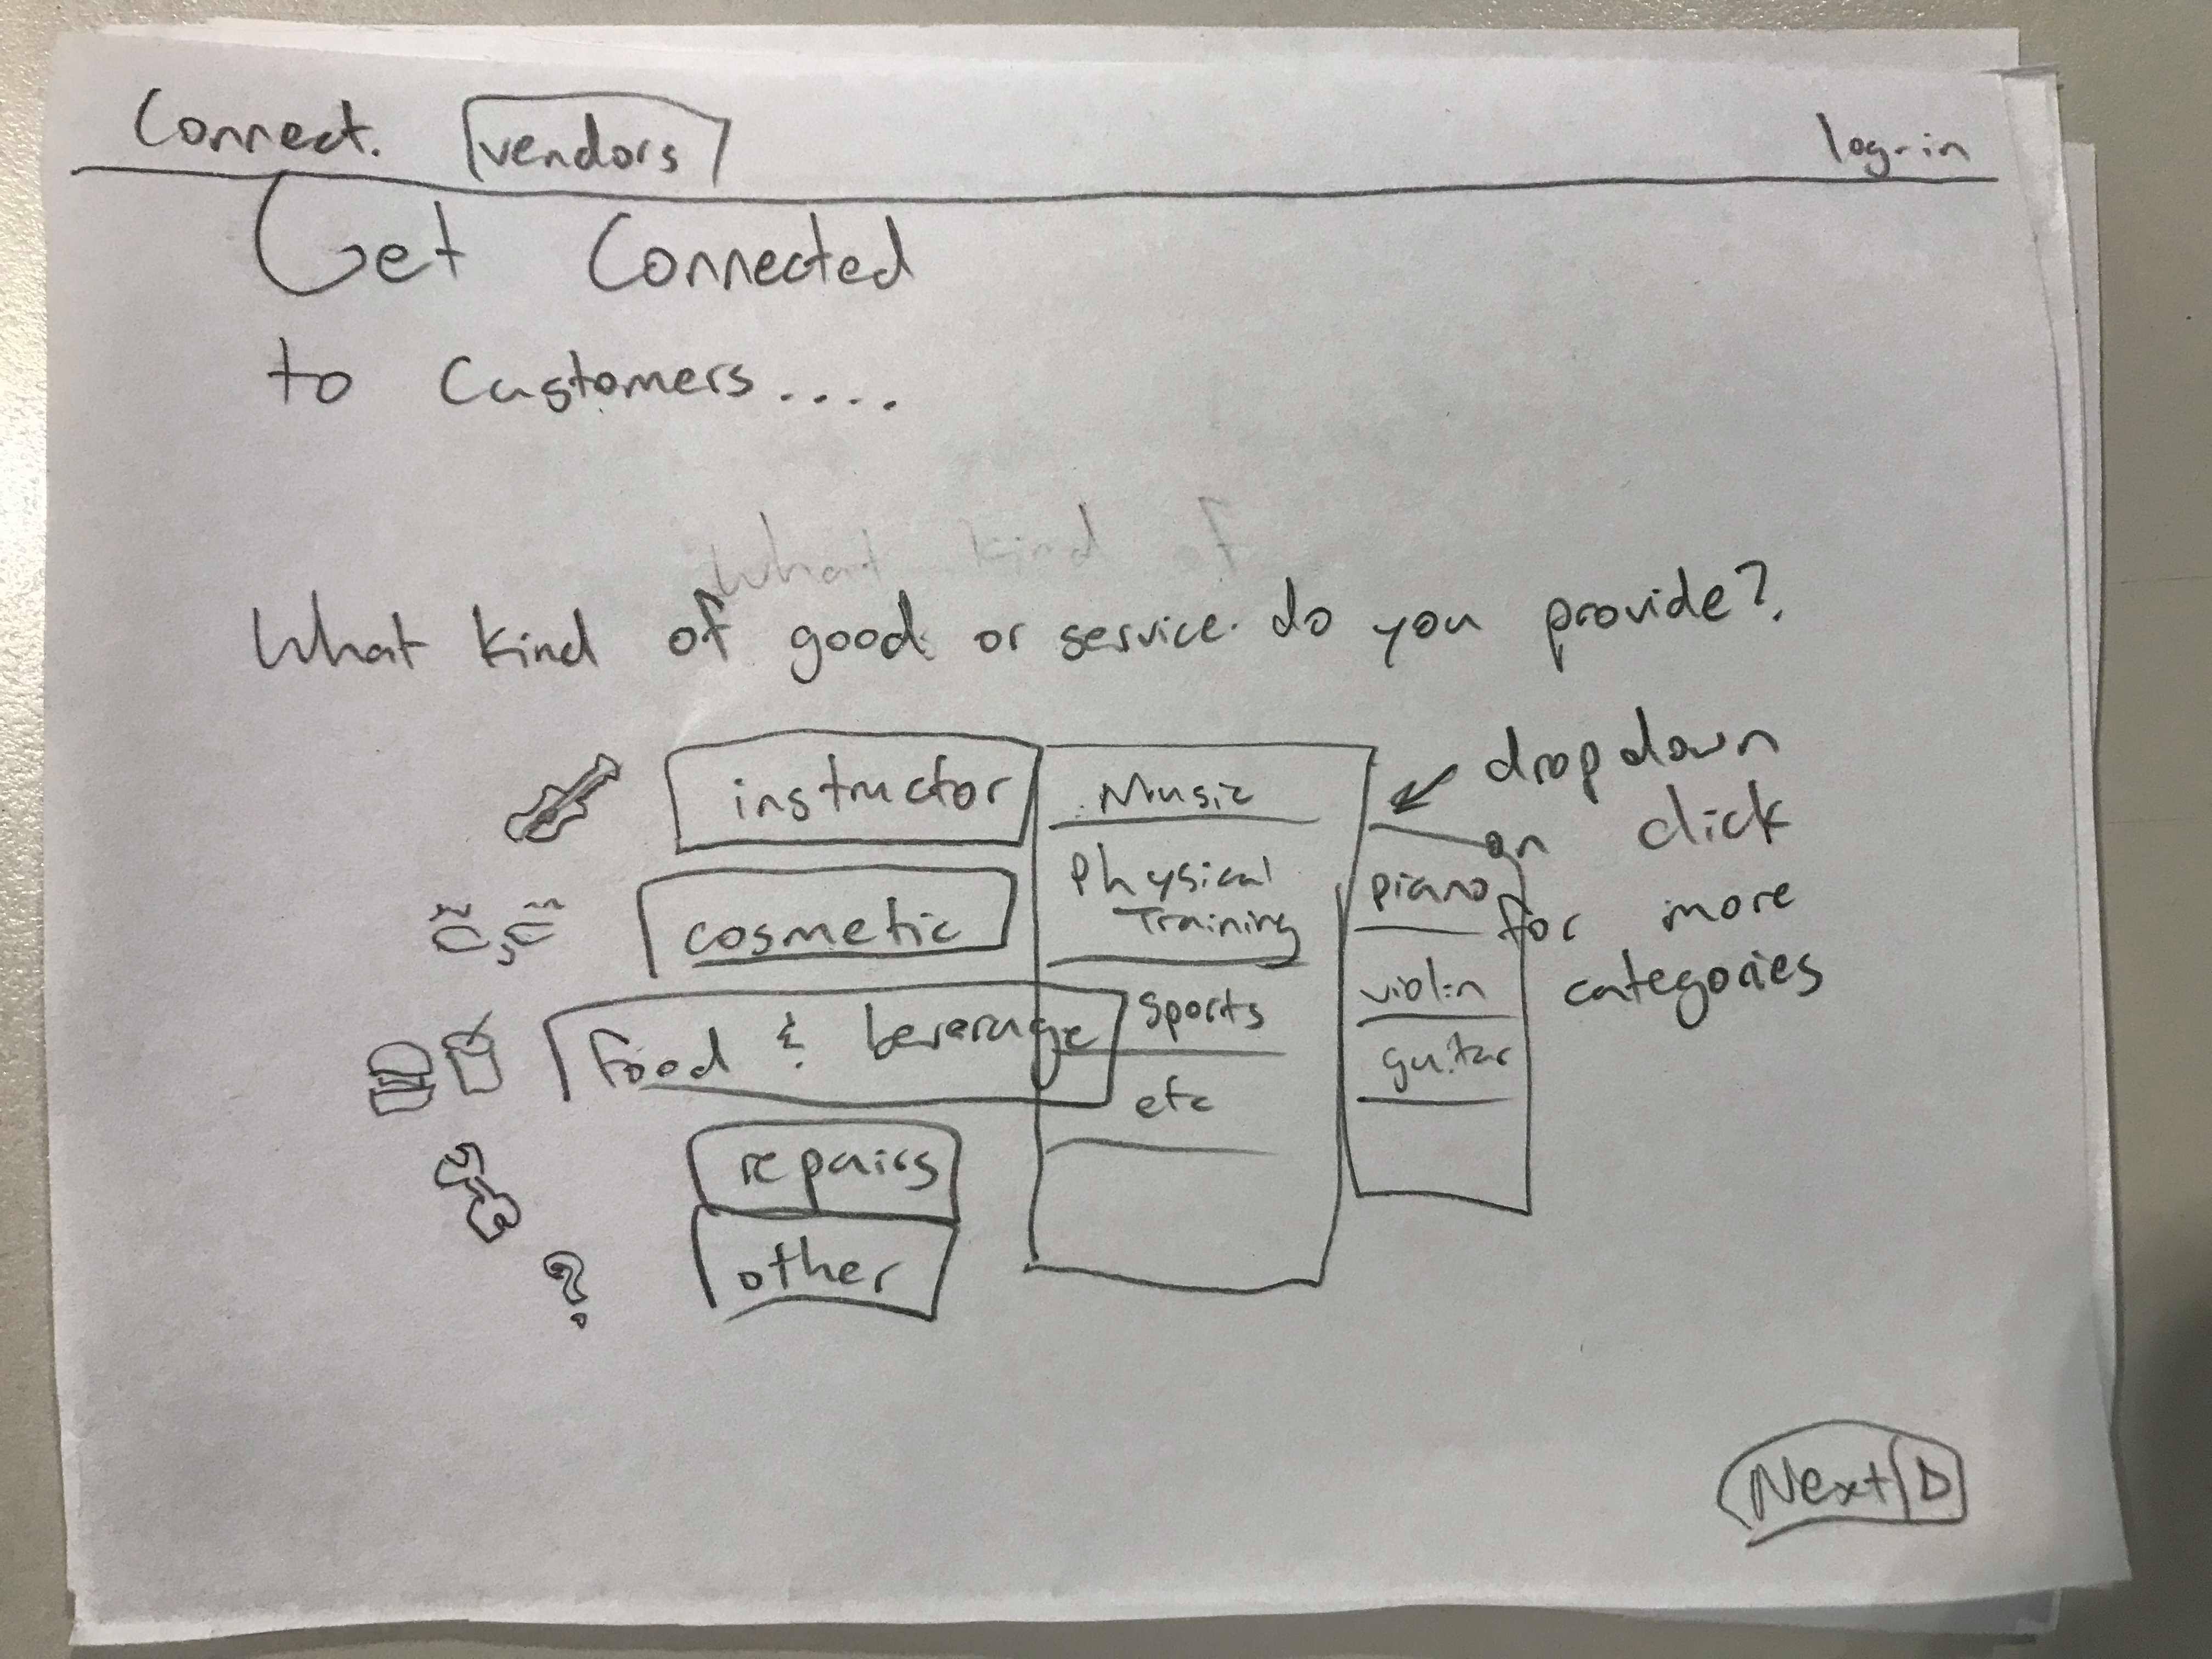 Connect. vendors log-in
Get Connected
to Customers....
What kind of
What kind of good or service do you provide?
instructor
cosmetic
food & beverage
repairs
other
Music
Physical
Training
Sports
etc
piano
violin
guitar
dropdown
on click
for more
categories
?
Next